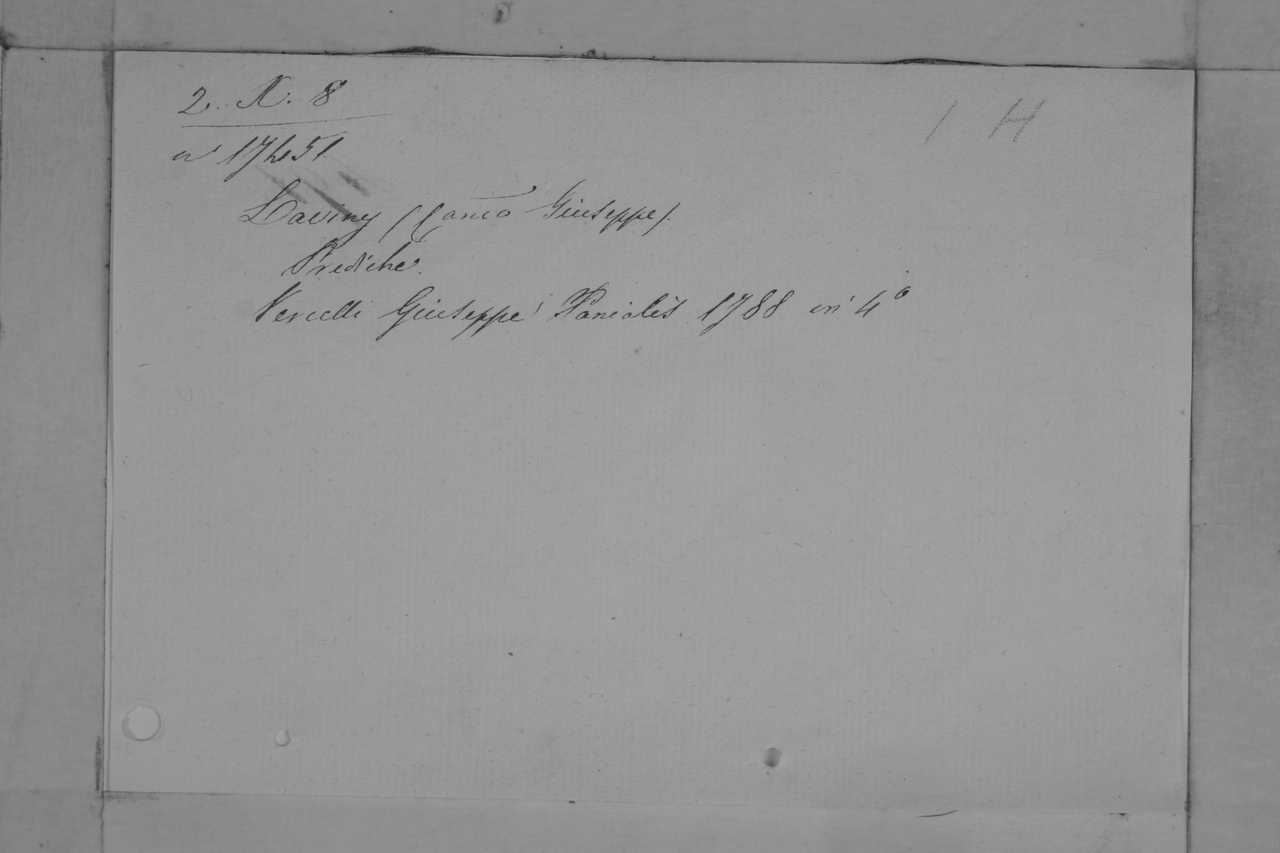 2. N. 8
1 H
n° 17451
Laviny (Canco Giuseppe).
Prediche.
Vercelli Giuseppe Panialis 1788 in 4°